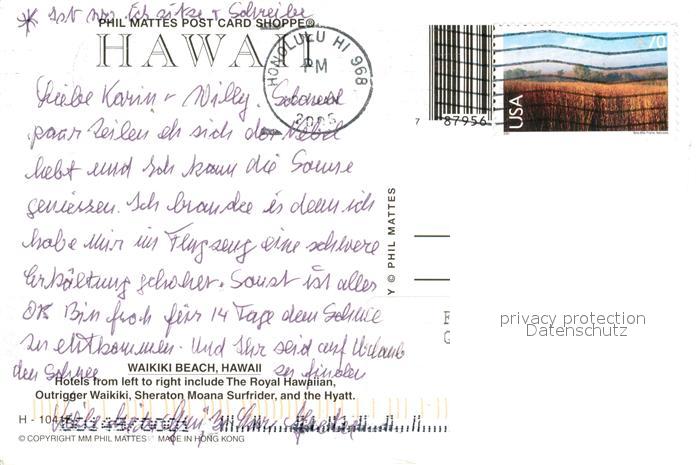 * Ist nur, ich sitze + schreibe
PHIL MATTES POST CARD SHOPPE®
HAWAII
HONOLULU HI 968
PM
2005
70
USA
7 87956
Liebe Karin + Willy.
paar Zeilen eh sich der Nebel
hebt und ich kann die Sonne
geniessen. Ich brauche es denn ich
habe mir im Flugzeug eine schwere
Erkältung geholt. Sonst ist alles
OK Bin froh für 14 Tage dem Schnee
zu entkommen. Und Ihr seid auf Urlaub
den Schnee zu finden
Y © PHIL MATTES
WAIKIKI BEACH, HAWAII
Hotels from left to right include The Royal Hawaiian,
Outrigger Waikiki, Sheraton Moana Surfrider, and the Hyatt.
H - 104
© COPYRIGHT MM PHIL MATTES MADE IN HONG KONG
privacy protection
Datenschutz